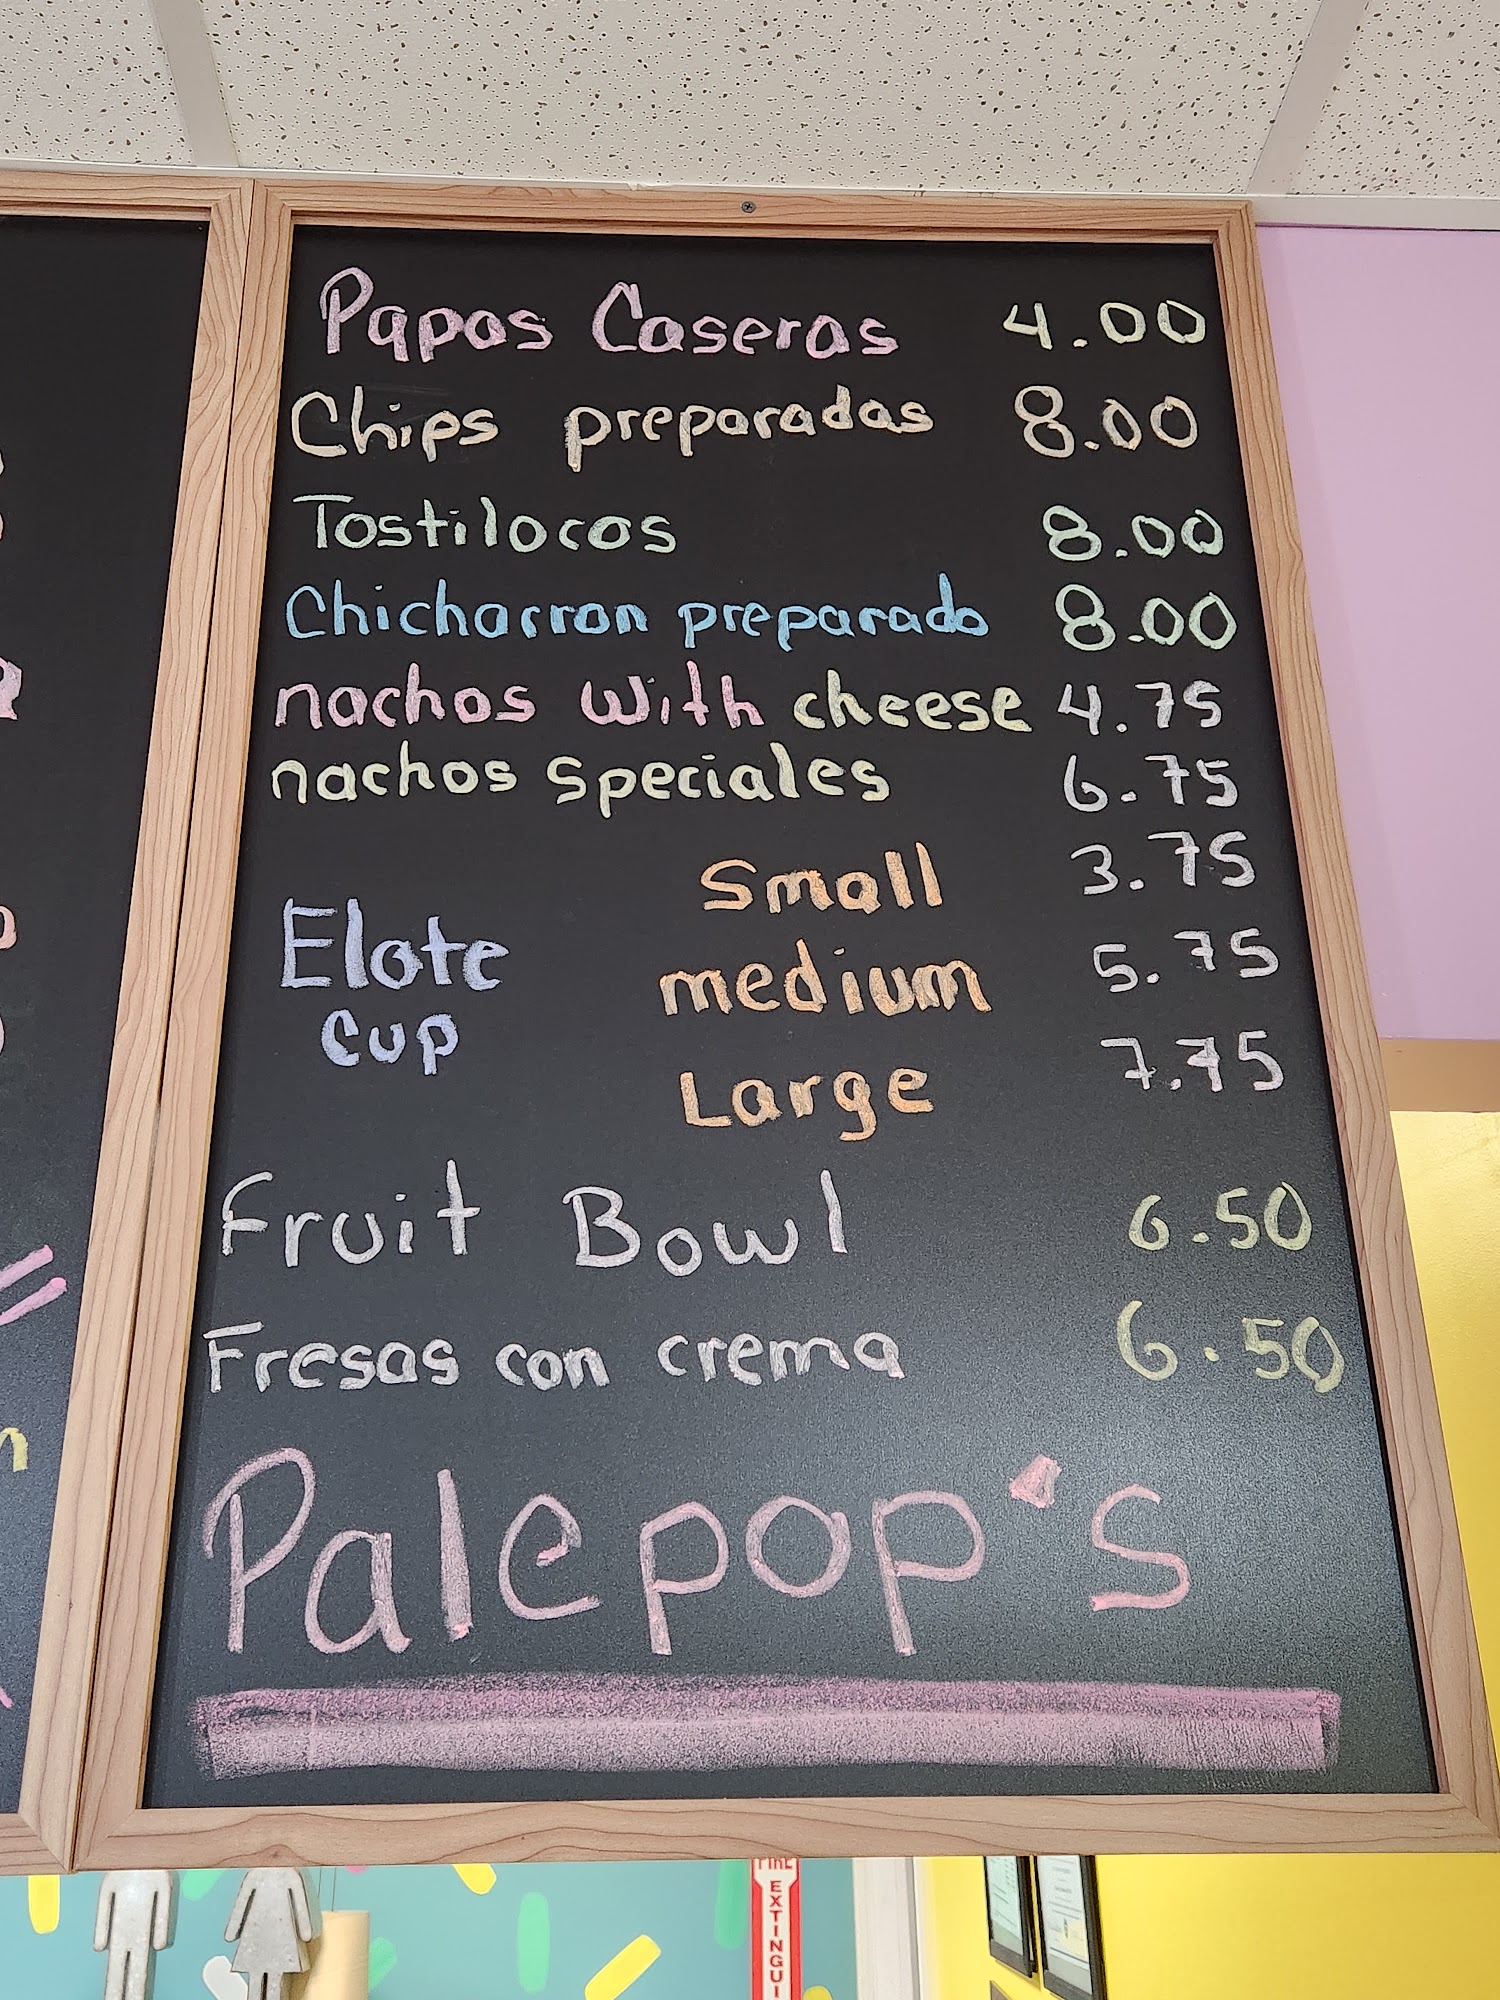 Papas Caseras 4.00
Chips preparadas 8.00
Tostilocos 8.00
Chicharron preparado 8.00
nachos with cheese 4.75
nachos speciales 6.75
Elote cup
Small 3.75
medium 5.75
Large 7.75
Fruit Bowl 6.50
Fresas con crema 6.50
Palepop's
FIRE
EXTINGUI